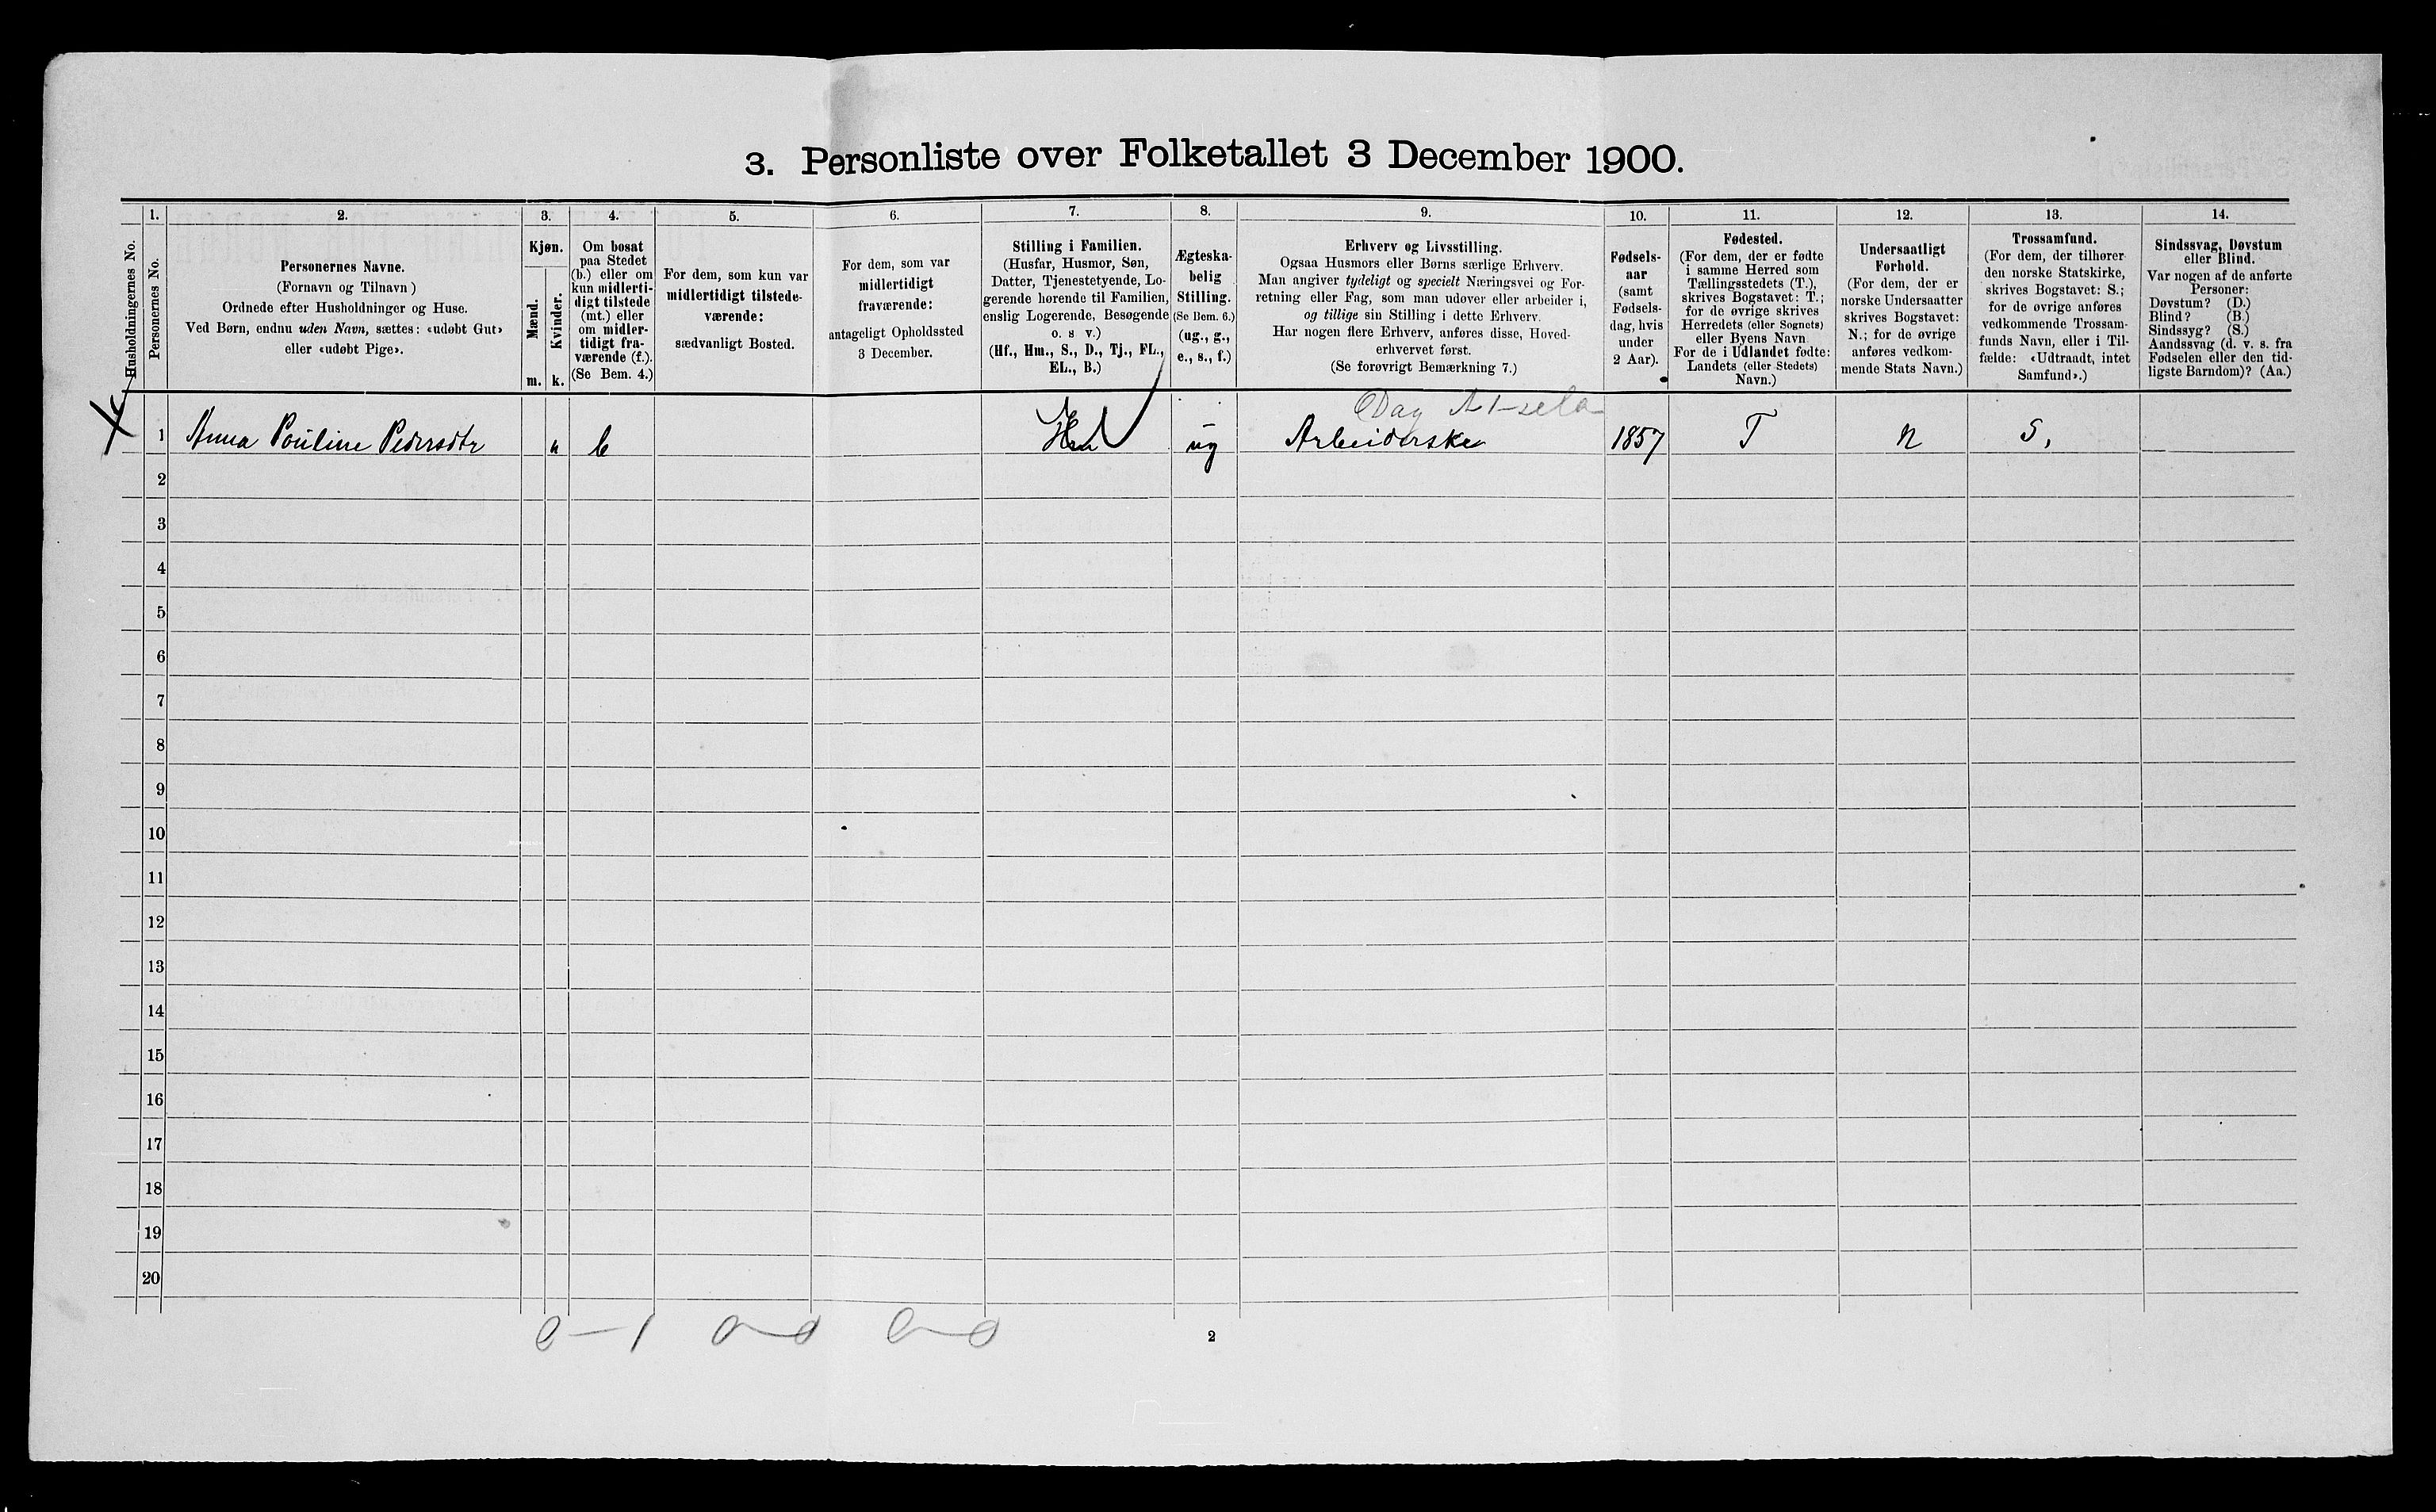 3. Personliste over Folketallet 3 December 1900.
Husholdningernes No.
1.
Personernes No.
2.
Personernes Navne.
(Fornavn og Tilnavn)
Ordnede efter Husholdninger og Huse.
Ved Børn, endnu uden Navn, sættes: «udøbt Gut»
eller «udøbt Pige».
3.
Kjøn.
Mænd.
Kvinder.
m. k.
4.
Om bosat
paa Stedet
(b.) eller om
kun midlerti-
digt tilstede
(mt.) eller
om midler-
tidigt fra-
værende (f.).
(Se Bem. 4.)
5.
For dem, som kun var
midlertidigt tilstede-
værende:
sædvanligt Bosted.
6.
For dem, som var
midlertidigt
fraværende:
antageligt Opholdssted
3 December.
7.
Stilling i Familien.
(Husfar, Husmor, Søn,
Datter, Tjenestetyende, Lo-
gerende hørende til Familien,
enslig Logerende, Besøgende
o. s v.)
(Hf., Hm., S., D., Tj., FL.,
EL., B.)
8.
Ægteska-
belig
Stilling.
(Se Bem. 6.)
(ug., g.,
e., s., f.)
9.
Erhverv og Livsstilling.
Ogsaa Husmors eller Børns særlige Erhverv.
Man angiver tydeligt og specielt Næringsvei og For-
retning eller Fag, som man udøver eller arbeider i,
og tillige sin Stilling i dette Erhverv.
Har nogen flere Erhverv, anføres disse, Hoved-
erhvervet først.
(Se forøvrigt Bemærkning 7.)
10.
Fødsels-
aar
(samt
Fødsels-
dag, hvis
under
2 Aar).
11.
Fødested.
(For dem, der er fødte
i samme Herred som
Tællingsstedets (T.),
skrives Bogstavet: T.;
for de øvrige skrives
Herredets (eller Sognets)
eller Byens Navn
For de i Udlandet fødte:
Landets (eller Stedets)
Navn.)
12.
Undersaatligt
Forhold.
(For dem, der er
norske Undersaatter
skrives Bogstavet:
N.; for de øvrige
anføres vedkom-
mende Stats Navn.)
13.
Trossamfund.
(For dem, der tilhører
den norske Statskirke,
skrives Bogstavet: S.;
for de øvrige anføres
vedkommende Trossam-
funds Navn, eller i Til-
fælde: «Udtraadt, intet
Samfund».)
14.
Sindssvag, Døvstum
eller Blind.
Var nogen af de anførte
Personer:
Døvstum? (D.)
Blind? (B.)
Sindssyg? (S.)
Aandssvag (d. v. s. fra
Fødselen eller den tid-
ligste Barndom)? (Aa.)
Dag
1 Anna Pouline Pedersdtr b ug Arbeiderske 1857 T n S,
2
3
4
5
6
7
8
9
10
11
12
13
14
15
16
17
18
19
20
0–1 0–0 0–0
2